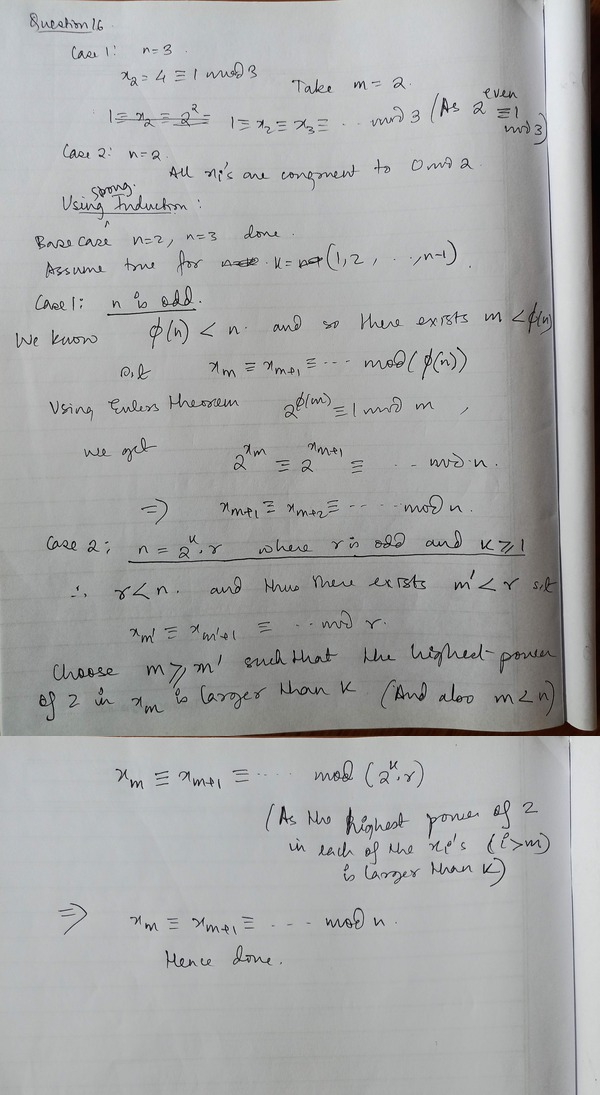 Question 16
Case 1: n=3
x₂ = 4 ≡ 1 mod 3
Take m = 2.
1 ≡ x₂ ≡ 2² = 1 ≡ x₂ ≡ x₃ ≡ ... mod 3 (As 2^even ≡ 1 mod 3)
Case 2: n=2.
All xᵢ's are congruent to 0 mod 2.
Using strong Induction:
Base case n=2, n=3 done.
Assume true for k = (1, 2, ..., n-1).
Case 1: n is odd.
We know φ(n) < n. and so there exists m < φ(n)
s.t x_m ≡ x_{m+1} ≡ ... mod (φ(n))
Using Eulers theorem 2^{φ(m)} ≡ 1 mod m,
we get 2^{x_m} ≡ 2^{x_{m+1}} ≡ ... mod n.
⇒ x_{m+1} ≡ x_{m+2} ≡ ... mod n.
Case 2: n = 2^k.r where r is odd and k ≥ 1
∴ r < n. and thus there exists m' < r s.t
x_{m'} ≡ x_{m'+1} ≡ ... mod r.
Choose m ≥ m' such that the highest power
of 2 in x_m is larger than k (And also m < n)
x_m ≡ x_{m+1} ≡ ... mod (2^k.r)
(As the highest power of 2
in each of the xᵢ's (i>m)
is larger than k)
⇒ x_m ≡ x_{m+1} ≡ ... mod n.
Hence done.